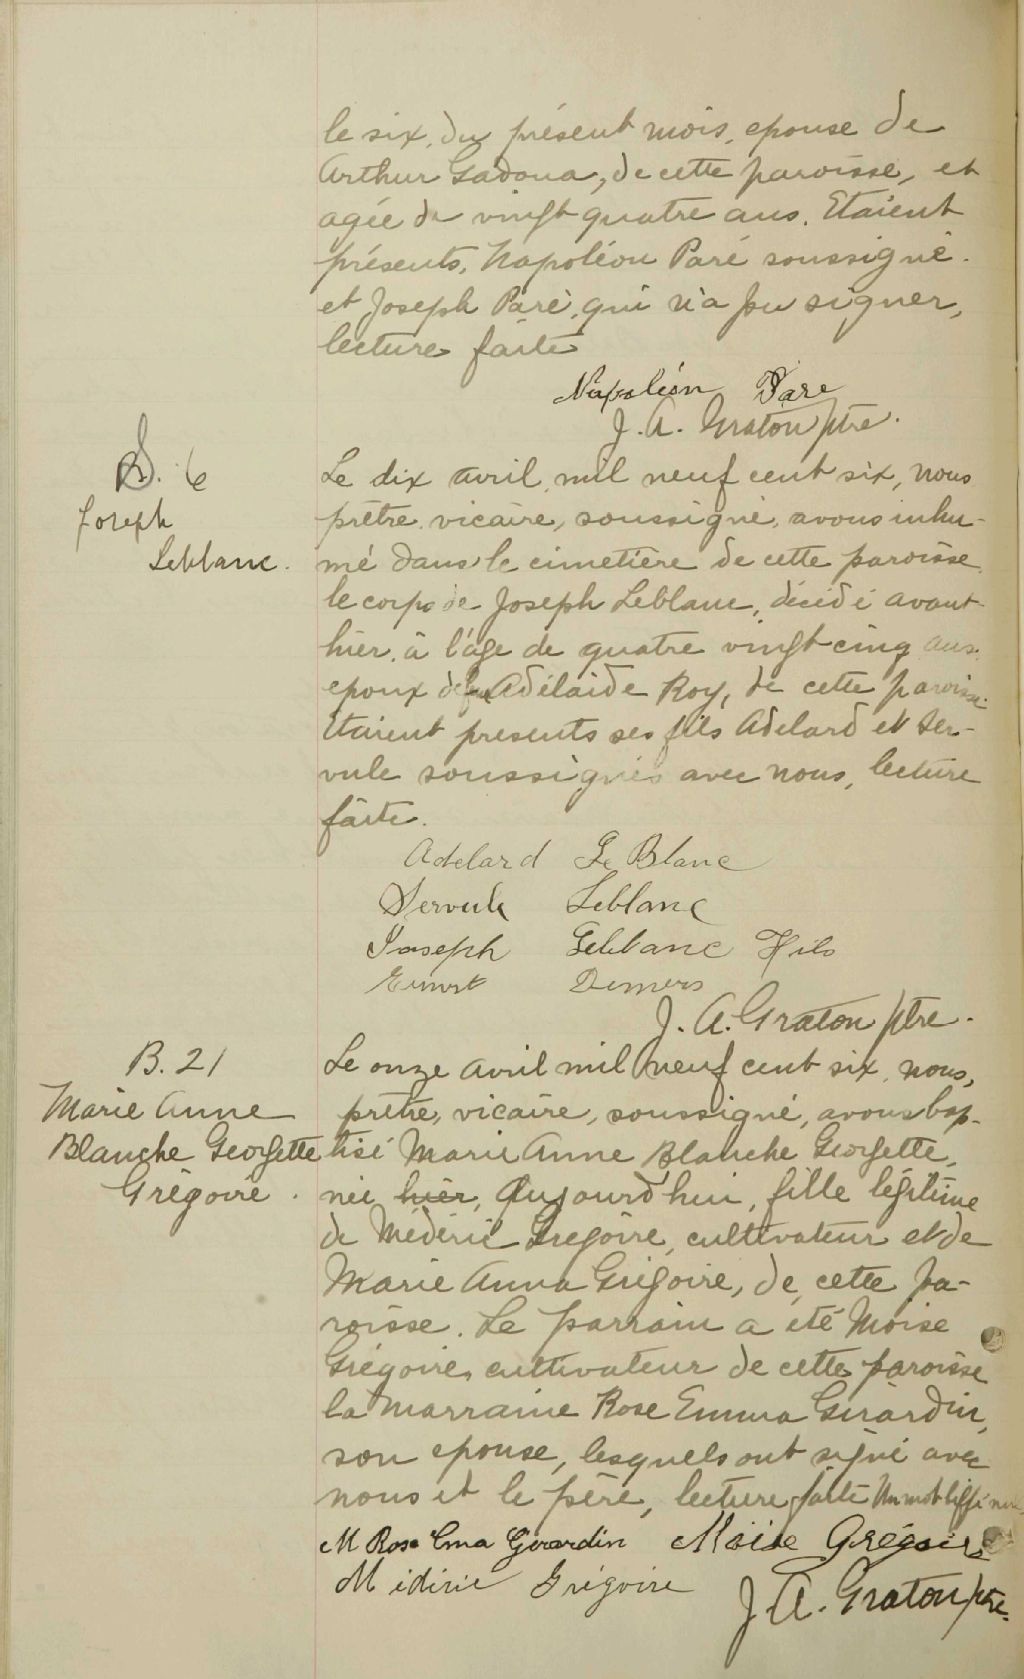 le six, du présent mois, epouse de
Arthur Gadoua, de cette paroisse, et
agée de vingt quatre ans. Etaient
présents, Napoléon Paré soussigné.
et Joseph Paré, qui n'a pu signer,
lecture faite
Napoléon Pare
J. A. Graton ptre.
S. 6
Joseph
Leblanc.
Le dix avril mil neuf cent six, nous
prêtre vicaire, soussigné, avons inhu-
mé dans le cimetière de cette paroisse
le corps de Joseph Leblanc, décédé avant
hier, à l'âge de quatre vingt cinq ans
epoux de feu Adélaide Roy, de cette paroisse
Etaient presents ses fils Adelard et Ser-
vule soussignés avec nous, lecture
faite.
Adelard Le Blanc
Servule Leblanc
Joseph Leblanc Fils
Demers
J. A. Graton ptre.
B. 21
Marie Anne
Blanche Georgette
Grégoire.
Le onze avril mil neuf cent six, nous,
prêtre, vicaire, soussigné, avons bap-
tisé Marie Anne Blanche Georgette,
née hier, aujourd'hui, fille légitime
de Médéric Grégoire, cultivateur et de
Marie Anna Grégoire, de cette pa-
roisse. Le parrain a été Moise
Grégoire, cultivateur de cette paroisse
la marraine Rose Emma Girardin,
son epouse, lesquels ont signé avec
nous et le père, lecture faite Un mot biffé nul
M Rose Ema Gerardin Moïse Grégoire
Midiric Grégoire
J. A. Graton ptre.